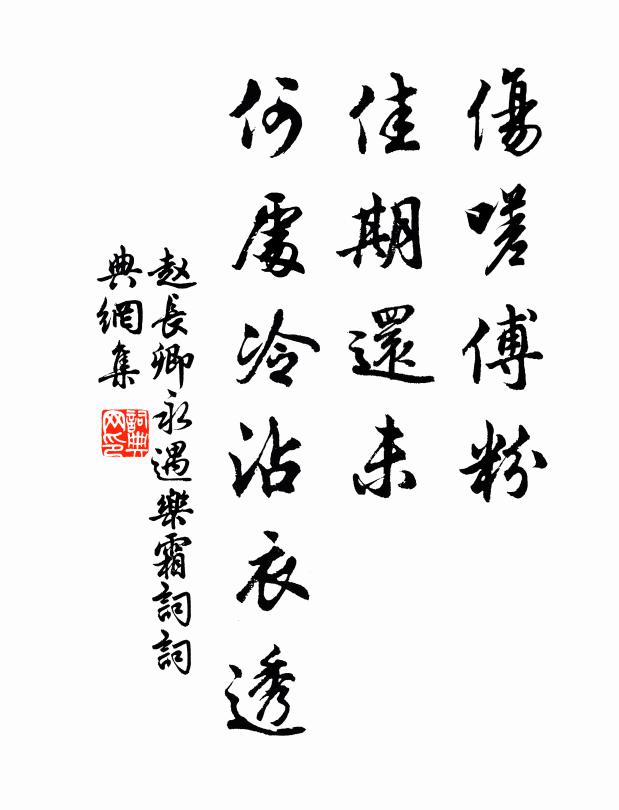 傷嗟傅粉
佳期還未
何處冷沾衣透
赵長卿永遇樂霜詞詞
典網集
詞典
网印